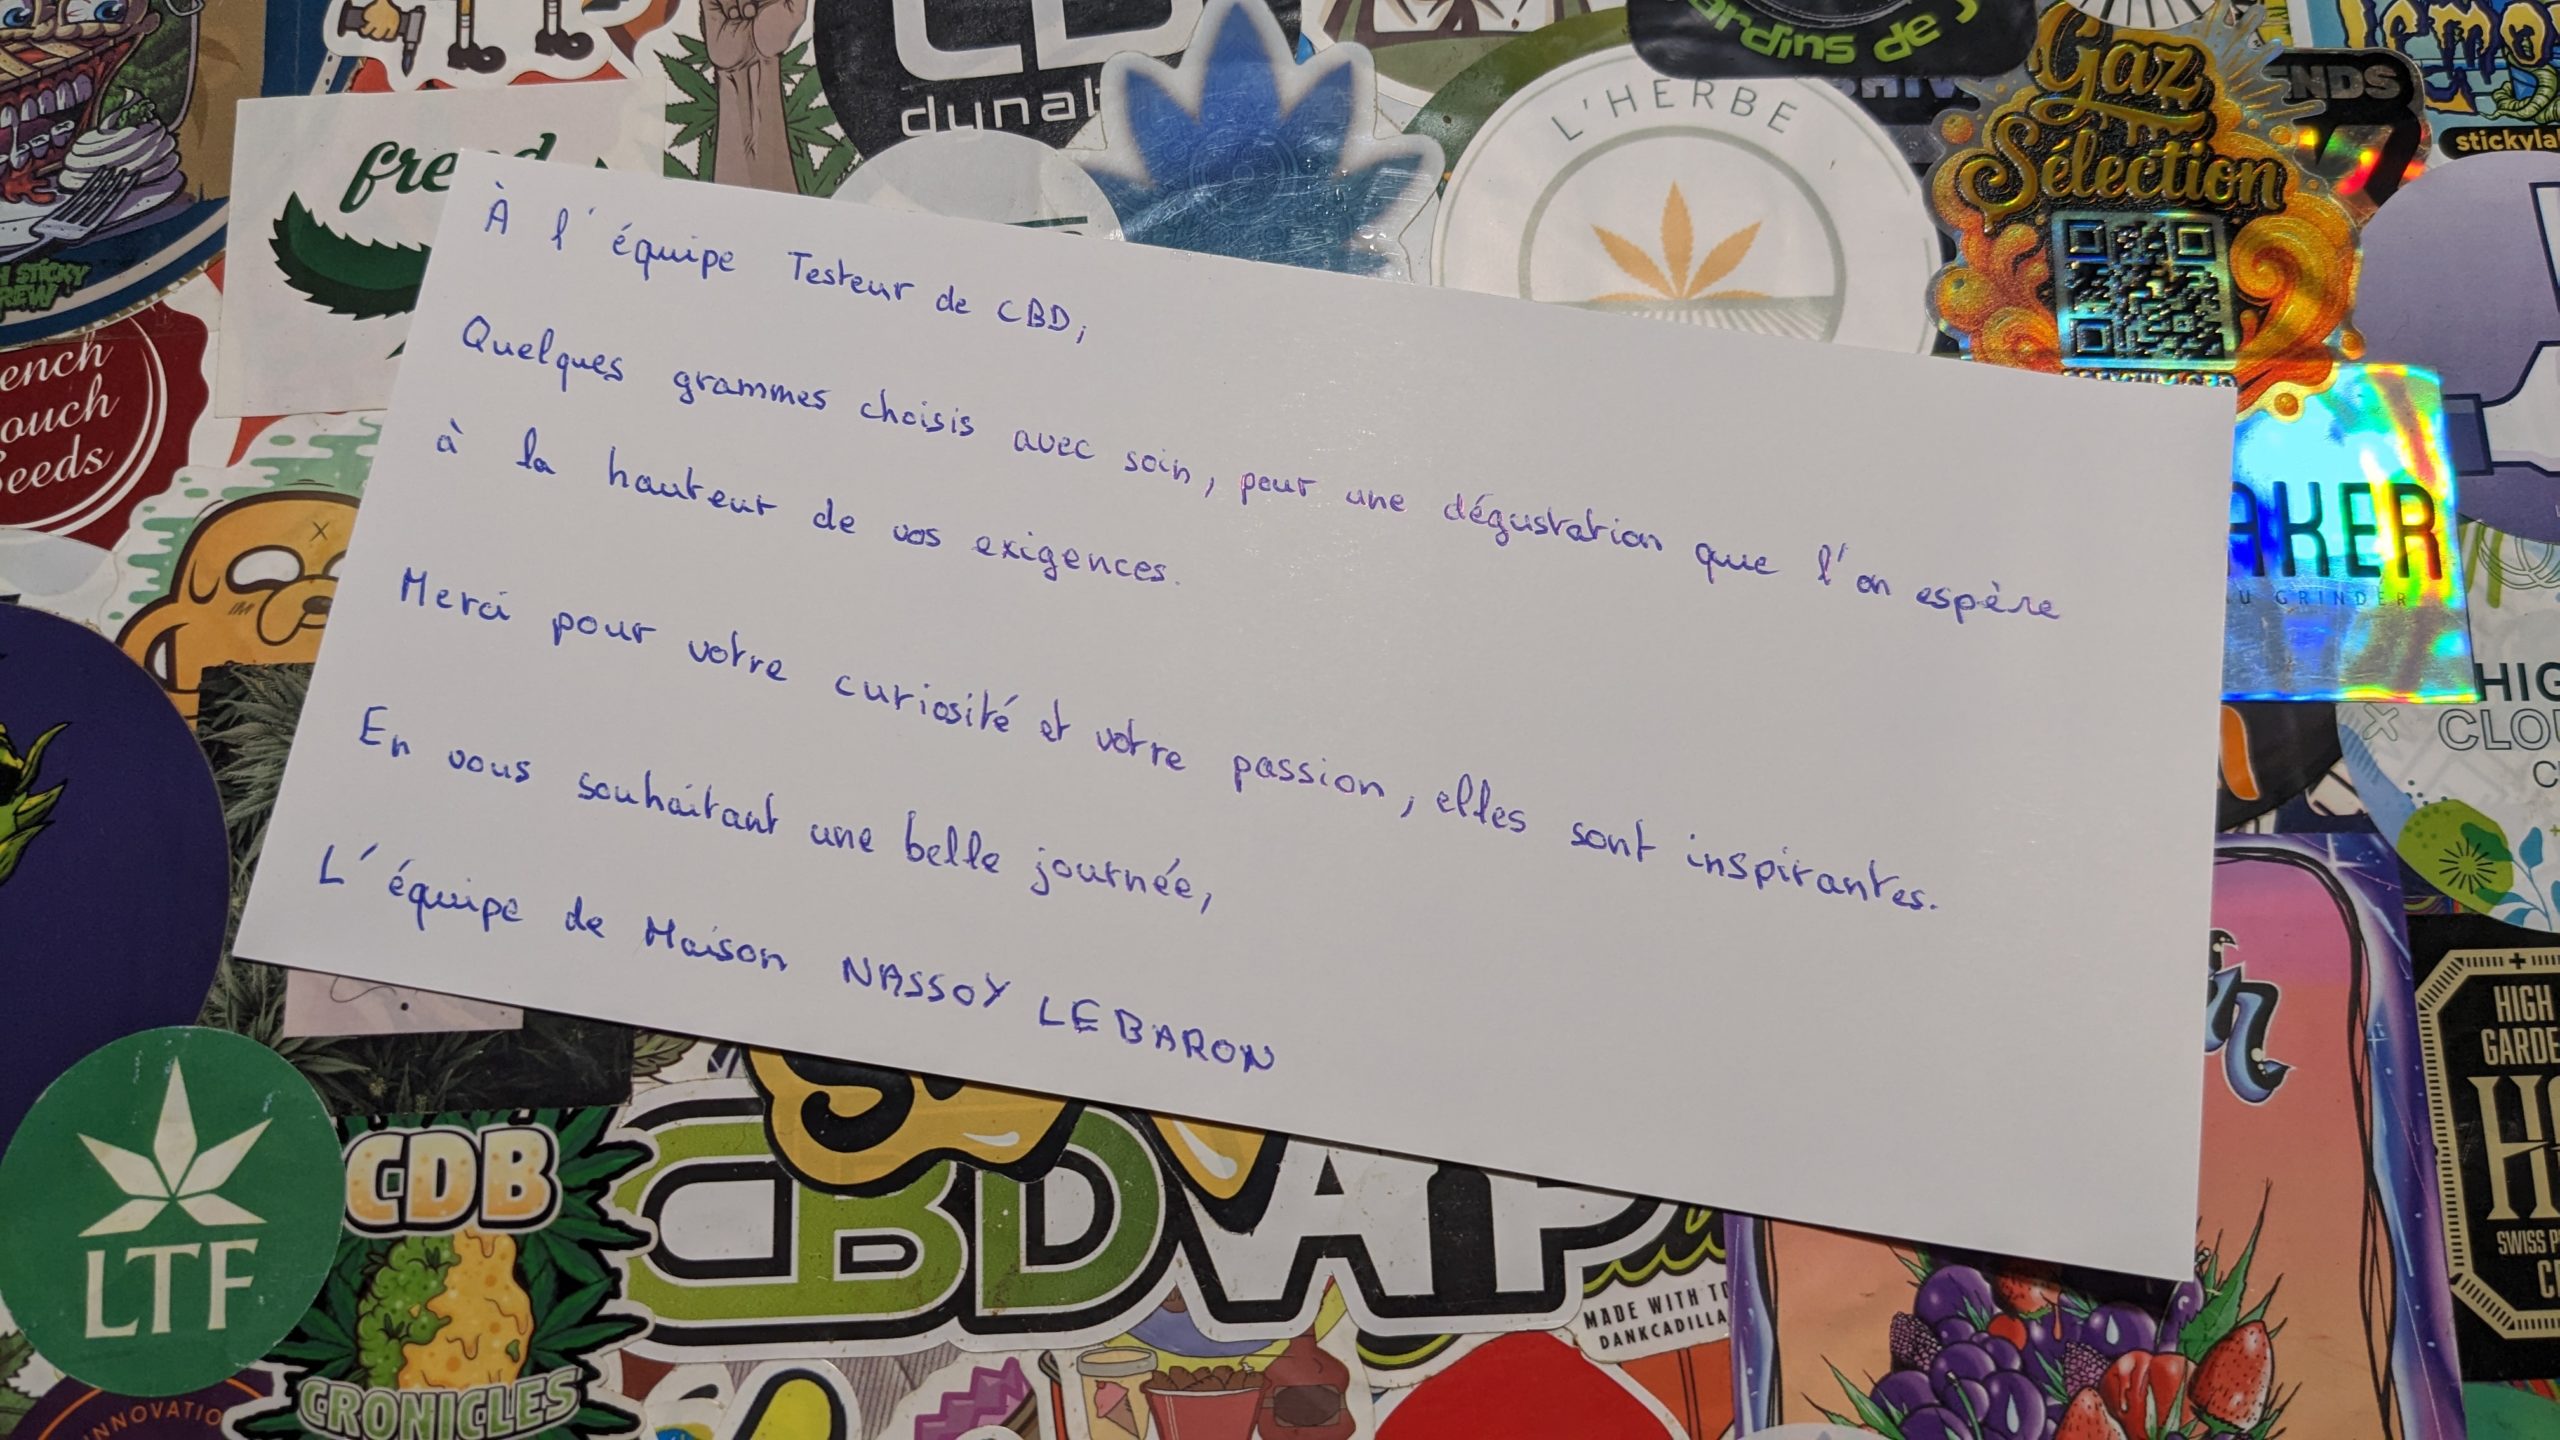 À l'équipe Testeur de CBD,
Quelques grammes choisis avec soin, pour une dégustation que l'on espère
à la hauteur de vos exigences.
Merci pour votre curiosité et votre passion, elles sont inspirantes.
En vous souhaitant une belle journée,
L'équipe de Maison NASSOY LEBARON
L'HERBE
Gaz
Sélection
LTF
CDB
CRONICLES
CBD
MADE WITH
DANKCADILLA
HIGH
SWISS
INNOVATIO
GRINDER